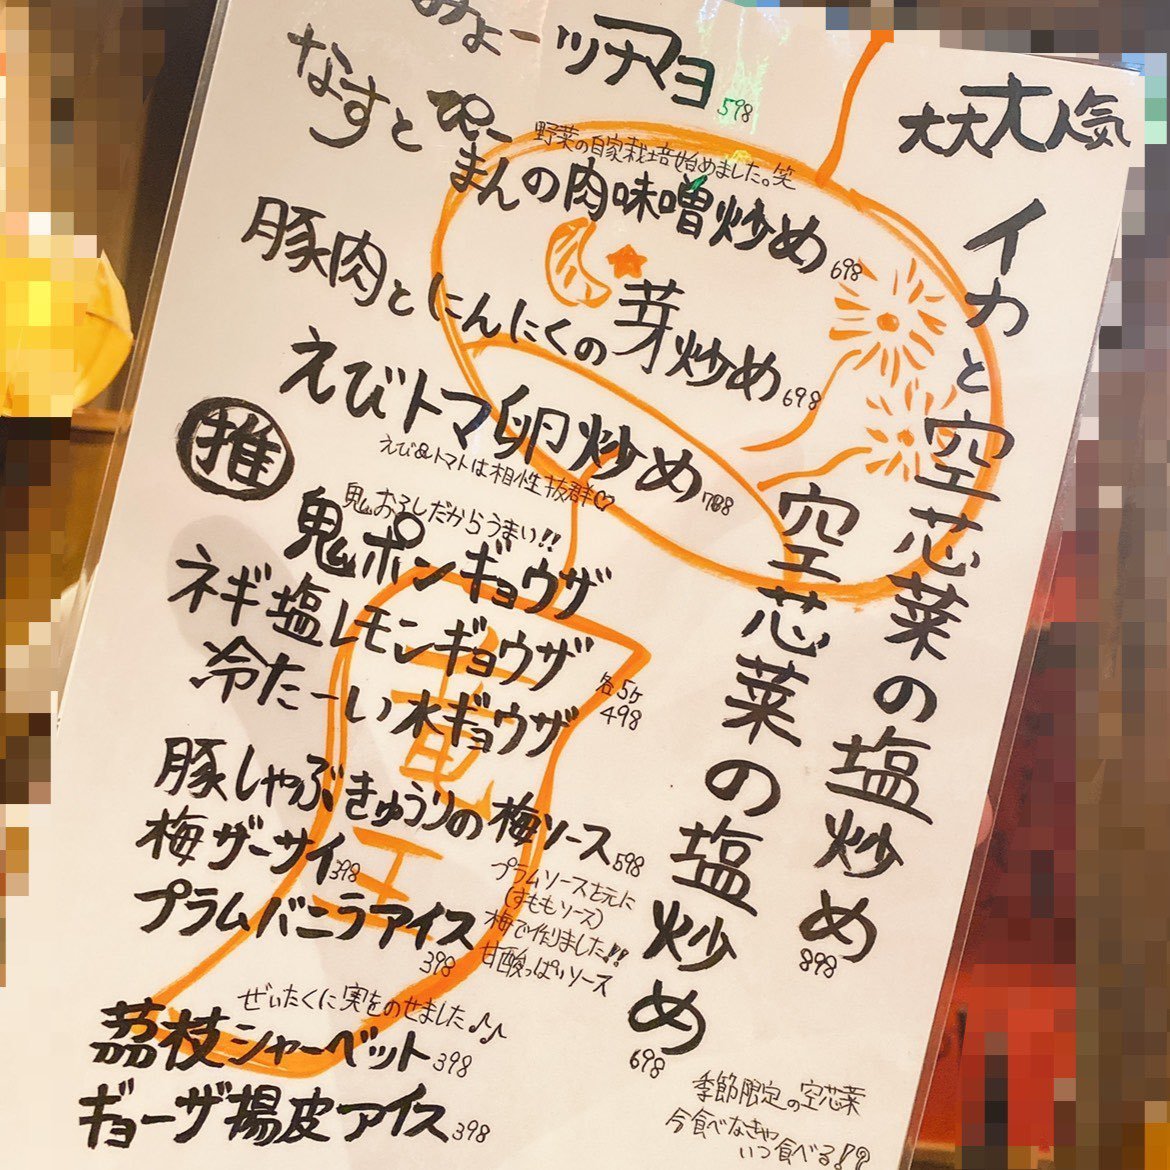 大大大人気
イカと空芯菜の塩炒め
898
空芯菜の塩炒め
698
季節限定の空芯菜
今食べなきゃ
いつ食べる!?
みょーツナマヨ 598
野菜の自家栽培始めました。笑
なすとぴーまんの肉味噌炒め 698
豚肉とにんにくの芽炒め 698
えびトマ卵炒め 788
えび&トマトは相性抜群♡
推
鬼おろしだからうまい!!
鬼ポンギョウザ
ネギ塩レモンギョウザ
冷たーい水ギョウザ
各5ヶ
498
豚しゃぶきゅうりの梅ソース 598
プラムソースを元に
(すももソース)
梅で作りました!!
甘酸っぱいソース
梅ザーサイ 398
プラムバニラアイス
398
ぜいたくに実をのせました♪♪
茘枝シャーベット 398
ギョーザ揚皮アイス 398
竜王